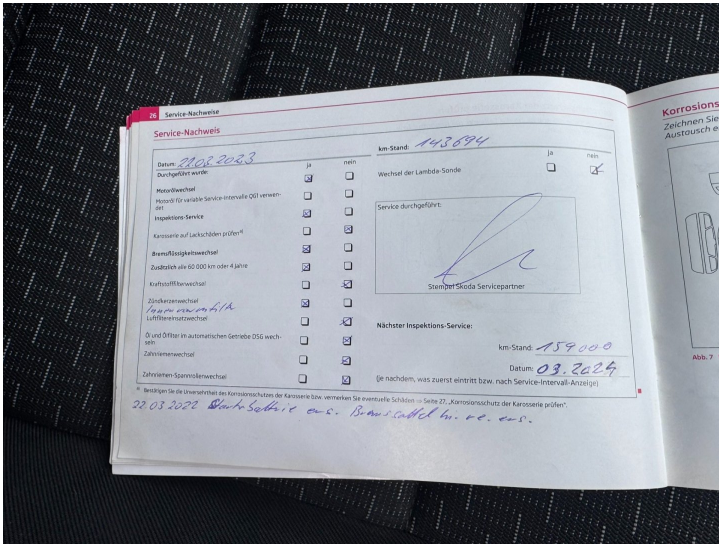 26 Service-Nachweise
Service-Nachweis
Datum: 22.03.2023
km-Stand: 143694
Durchgeführt wurde:
ja nein
Motorölwechsel
Motoröl für variable Service-Intervalle QG1 verwen-
det
Inspektions-Service
Karosserie auf Lackschäden prüfen a)
Bremsflüssigkeitswechsel
Zusätzlich alle 60 000 km oder 4 Jahre
Kraftstofffilterwechsel
Zündkerzenwechsel
Luftfiltereinsatzwechsel
Öl und Ölfilter im automatischen Getriebe DSG wech-
seln
Zahnriemenwechsel
Zahnriemen-Spannrollenwechsel
ja nein
Wechsel der Lambda-Sonde
Service durchgeführt:
Stempel Skoda Servicepartner
Nächster Inspektions-Service:
km-Stand: 159000
Datum: 03.2024
(je nachdem, was zuerst eintritt bzw. nach Service-Intervall-Anzeige)
a) Bestätigen Sie die Unversehrtheit des Korrosionsschutzes der Karosserie bzw. vermerken Sie eventuelle Schäden ⇒ Seite 27, „Korrosionsschutz der Karosserie prüfen“.
22.03.2022 Starterbatterie ers. Bremssattel hi. re. ers.
Korrosions
Zeichnen Sie
Austausch e
Abb. 7